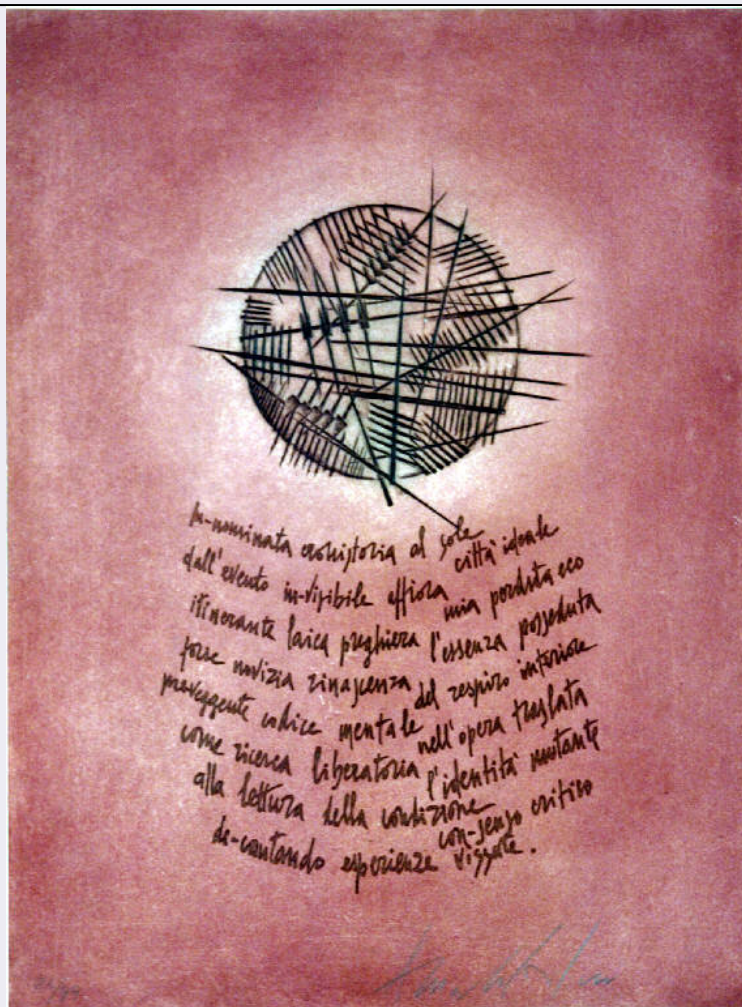 in-nominata cronistoria al sole città ideale
dall'evento in-visibile affiora mia perduta eco
itinerante laica preghiera l'essenza posseduta
forse novizia rinascenza del respiro interiore
preveggente codice mentale nell'opera traslata
come ricerca liberatoria l'identità mutante
alla lettura della condizione con-senso critico
de-cantando esperienze vissute.